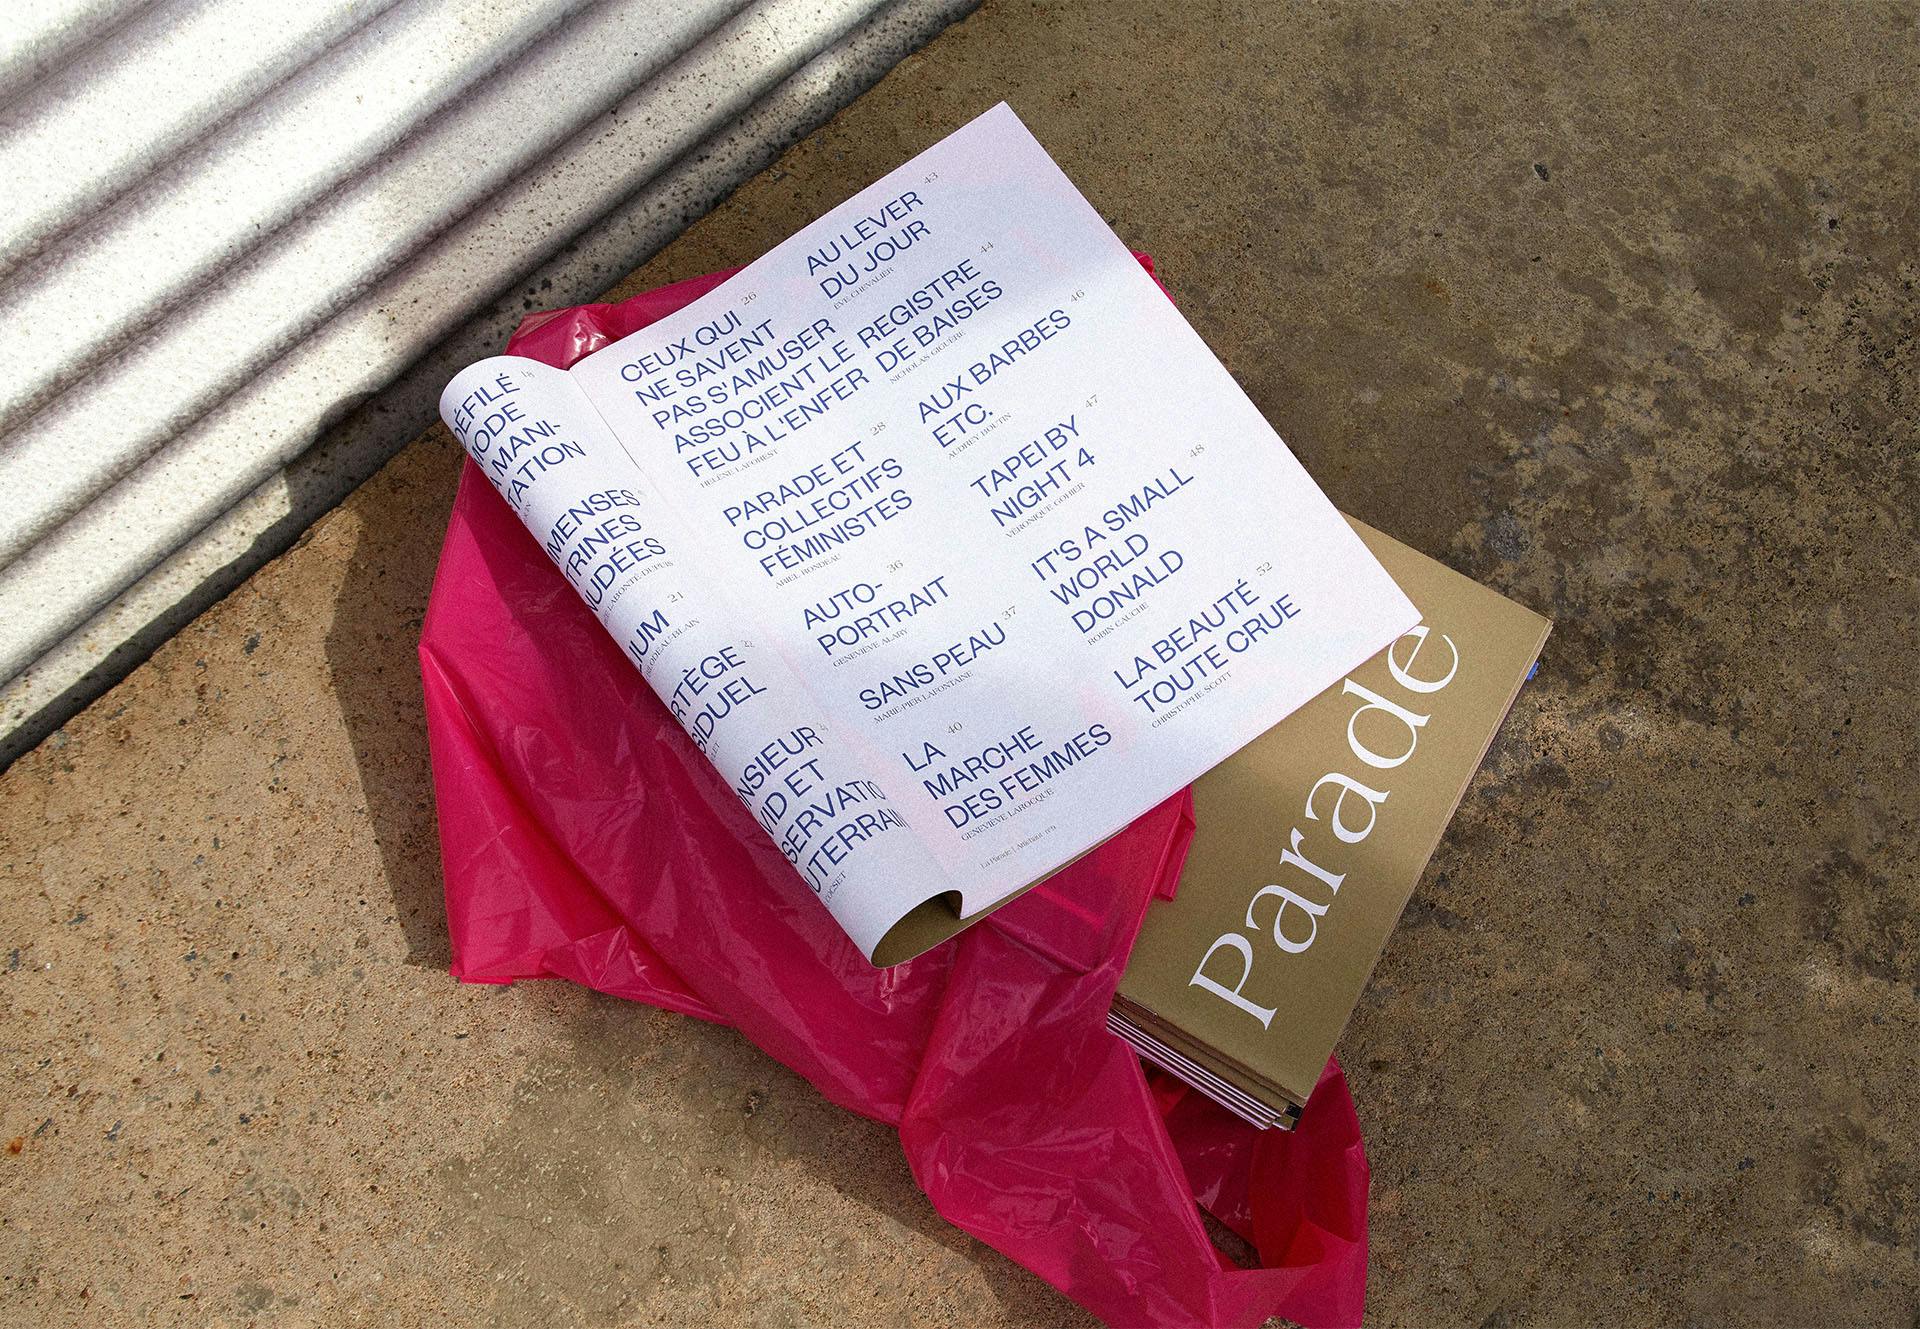 DÉFILÉ
MODE
MANI-
TATION
MENSES
TRINES
NUDÉES
LABONTÉ-DUPUIS
21
IUM
BILODEAU-BLAIN
RTÈGE
SIDUEL
NSIEUR
VID ET
SERVATIO
UTERRAIN
26
CEUX QUI
NE SAVENT
PAS S'AMUSER
ASSOCIENT LE
FEU À L'ENFER
HÉLÈNE LAFOREST
28
PARADE ET
COLLECTIFS
FÉMINISTES
ARIEL RONDEAU
36
AUTO-
PORTRAIT
GENEVIÈVE ALARY
37
SANS PEAU
MARIE-PIER LAFONTAINE
40
LA
MARCHE
DES FEMMES
GENEVIÈVE LAROCQUE
43
AU LEVER
DU JOUR
ÈVE CHEVALIER
44
REGISTRE
DE BAISES
NICHOLAS GIGUÈRE
46
AUX BARBES
ETC.
AUDREY BOUTIN
47
TAPEI BY
NIGHT 4
VÉRONIQUE GOHIER
48
IT'S A SMALL
WORLD
DONALD
ROBIN CAUCHE
52
LA BEAUTÉ
TOUTE CRUE
CHRISTOPHE SCOTT
La Parade | Artichaut
Parade